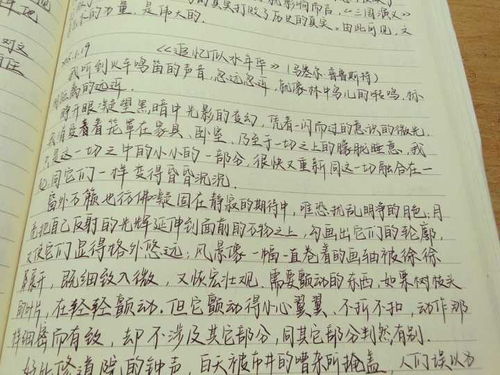 的力量，是伟大的。
《追忆似水年华》（马塞尔·普鲁斯特）
我听到火车鸣笛的声音，忽远忽近，就像林中鸟儿的转鸣，标
距离的远近。
睁开眼凝望黑暗中光影的变幻，凭着一闪而过的意识的微光，
着花罩在家具、卧室，乃至于一切之上的朦胧睡意，我
是这一切之中的小小的一部分，很快又重新同这一切融合在一
起，同它们一样变得昏昏沉沉。
窗外万籁也彷佛凝固在静寂的期待中，唯恐扰乱明净的月色；月
把自己反射的光辉延伸到面前的万物之上，勾画出它们的轮廓，
又使它们显得格外悠远；风景像一幅一直卷着的画轴被徐徐
展开，既细致入微，又恢宏壮观。需要颤动的东西，如果树枝头
的叶片，在轻轻颤动。但它颤动得小心翼翼、不折不扣，动作那
样细密而有致，却不涉及其它部分，同其它部分判然有别。
好比修道院的钟声，白天被市井的嘈杂所掩盖，人们误以为